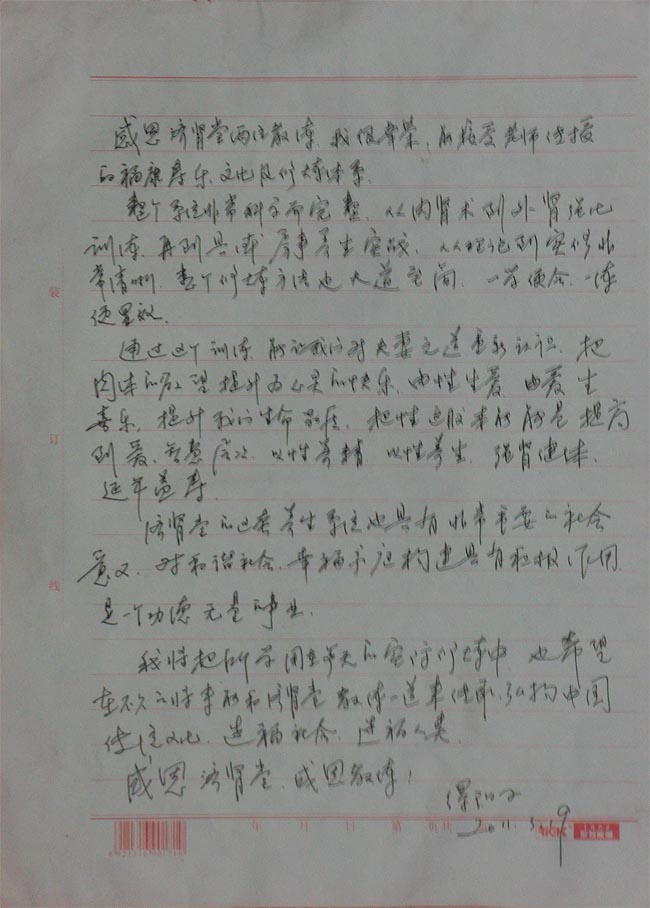 感恩济肾堂两位教练，我很幸荣，能接受老师传授
的福康寿乐文化及修炼体系。
整个系统非常科学而完整，从内肾术到外肾强化
训练，再到具体房事养生实战，从理论到实修非
常清晰，整个修炼方法也大道至简，一学便会，一炼
便显效。
通过这个训练，能让我们对夫妻之道重新认识，把
肉体的欲望提升为心灵的快乐，由性生爱，由爱生
喜乐，提升我们生命品质，把性这股本能能量提高
到爱、智慧层次，以性养精，以性养生，强肾健体，
延年益寿。
济肾堂的这套养生系统也具有非常重要的社会
意义，对和谐社会、幸福家庭构建具有积极作用，
是一个功德无量的事业。
我将把所学用在每天的实际修炼中，也希望
在不久的将来能和济肾堂教练一道来传承、弘扬中国
传统文化，造福社会，造福人类。
感恩济肾堂，感恩教练！
2011.5.19
装
订
线
年 月 日 第 页